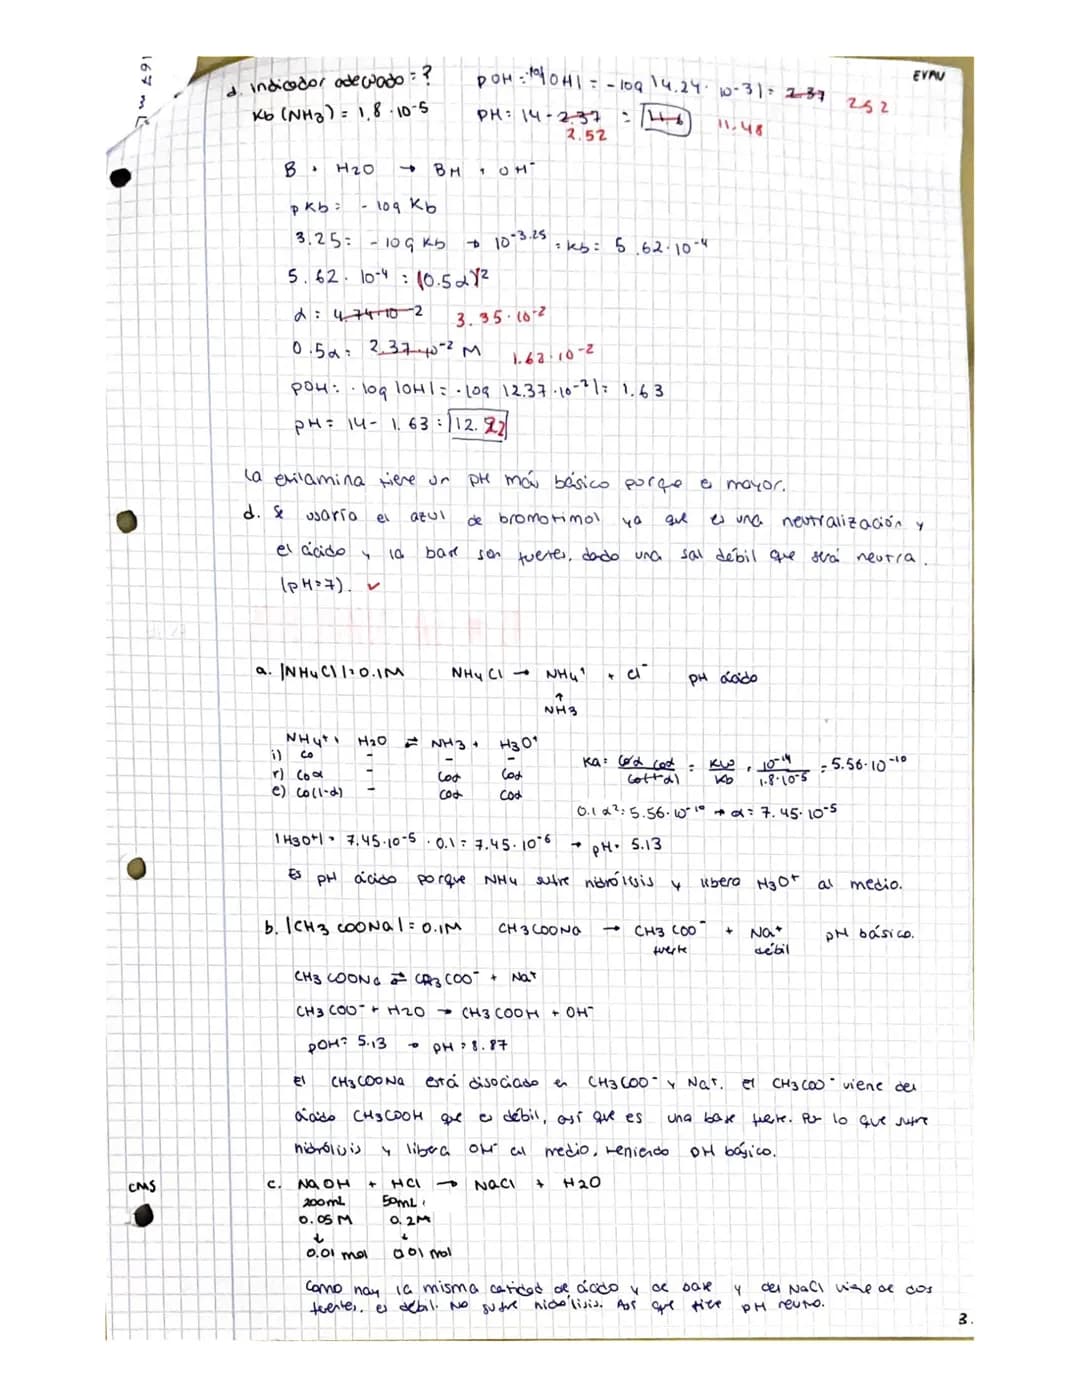 EVAU
d. Indicador adecuado = ? pOH = -log |OH| = -log |4.24 · 10-3| = 2.37 2.52
Kb (NH3) = 1,8 · 10-5 PH = 14 - 2.37 = 11.6 11.48
2.52
B + H2O → BH + OH-
pKb = - log Kb
3.25 = - log Kb → 10-3.25 = Kb = 5.62 · 10-4
5.62 · 10-4 = (0.5α)2
α = 4.74·10-2 3.35·10-2
0.5α = 2.37·10-2 M 1.62·10-2
pOH = -log |OH| = -log |2.37·10-2| = 1.63
pH = 14 - 1.63 = 12.22
La etilamina tiene un pH más básico porque es mayor.
d. Se usaría el azul de bromotimol ya que es una neutralización y
el ácido y la base son fuertes, dado una sal débil que será neutra.
(pH=7). ✓
a. |NH4Cl| = 0.1M NH4Cl → NH4+ + Cl- pH ácido
↑
NH3
NH4+ + H2O ⇌ NH3 + H3O+
i) Co - - -
r) Coα - Coα Coα
e) Co(1-α) - Coα Coα
Ka = Coα Coα / Co(1-α) = Kw / Kb = 10-14 / 1.8·10-5 = 5.56·10-10
0.1 α2 = 5.56·10-10 → α = 7.45·10-5
|H3O+| = 7.45·10-5 · 0.1 = 7.45·10-6 → pH = 5.13
Es pH ácido porque NH4 sufre hidrólisis y libera H3O+ al medio.
b. |CH3COONa| = 0.1M CH3COONa → CH3COO- + Na+ pH básico.
fuerte débil
CH3COONa ⇌ CH3COO- + Na+
CH3COO- + H2O → CH3COOH + OH-
pOH = 5.13 → pH = 8.87
El CH3COONa está disociado en CH3COO- y Na+. el CH3COO- viene del
ácido CH3COOH que es débil, así que es una base fuerte. Por lo que sufre
hidrólisis y libera OH- al medio, teniendo pH básico.
CMS
c. NaOH + HCl → NaCl + H2O
200mL 50mL
0.05 M 0.2M
↓ ↓
0.01 mol 0.01 mol
Como hay la misma cantidad de ácido y de base y del NaCl viene de dos
fuertes, es débil. No sufre hidrólisis. Así que tiene pH neutro.
3.